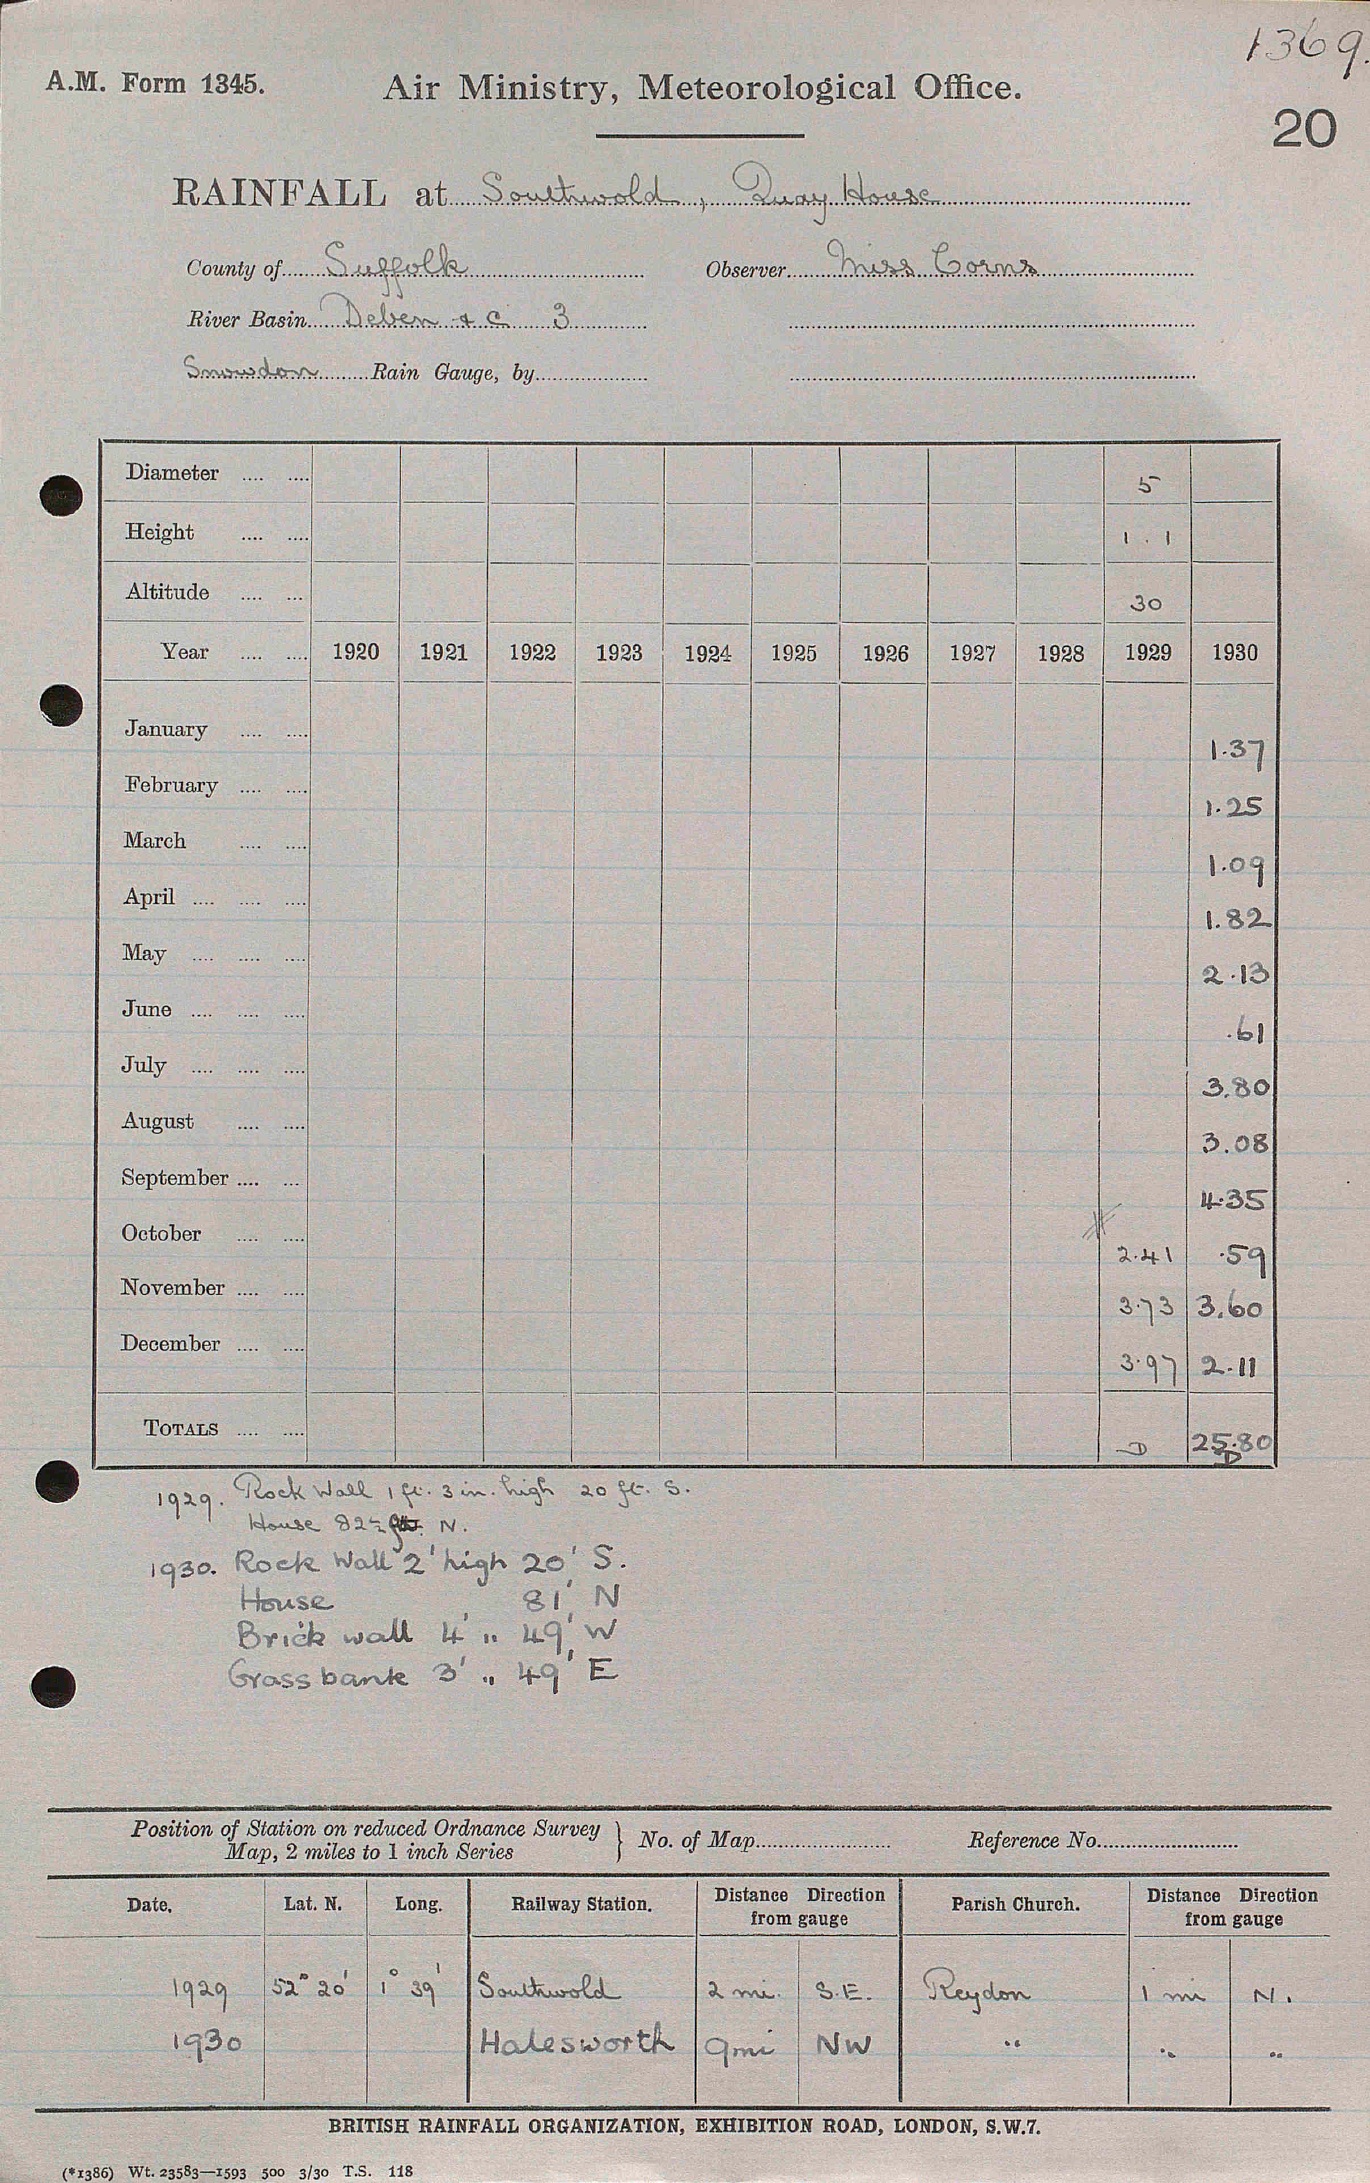 1369.
A.M. Form 1345. Air Ministry, Meteorological Office.
20
RAINFALL at Southwold, Quay House
County of Suffolk Observer Miss Corns
River Basin Deben & c 3
Snowdon Rain Gauge, by
Diameter 5
Height 1.1
Altitude 30
Year 1920 1921 1922 1923 1924 1925 1926 1927 1928 1929 1930
January 1.37
February 1.25
March 1.09
April 1.82
May 2.13
June .61
July 3.80
August 3.08
September 4.35
October 2.41 .59
November 3.73 3.60
December 3.97 2.11
TOTALS D 25.80 D
1929. Rock Wall 1 ft. 3 in. high 20 ft. S.
House 82½ ft. N.
1930. Rock Wall 2' high 20' S.
House 81' N
Brick wall 4' " 49' W
Grass bank 3' " 49' E
Position of Station on reduced Ordnance Survey
Map, 2 miles to 1 inch Series } No. of Map Reference No.
Date. Lat. N. Long. Railway Station. Distance Direction from gauge Parish Church. Distance Direction from gauge
1929 52° 20' 1° 39' Southwold 2 mi. S.E. Reydon 1 mi N.
1930 Halesworth 9mi NW " " "
BRITISH RAINFALL ORGANIZATION, EXHIBITION ROAD, LONDON, S.W.7.
(*1386) Wt. 23583—1593 500 3/30 T.S. 118